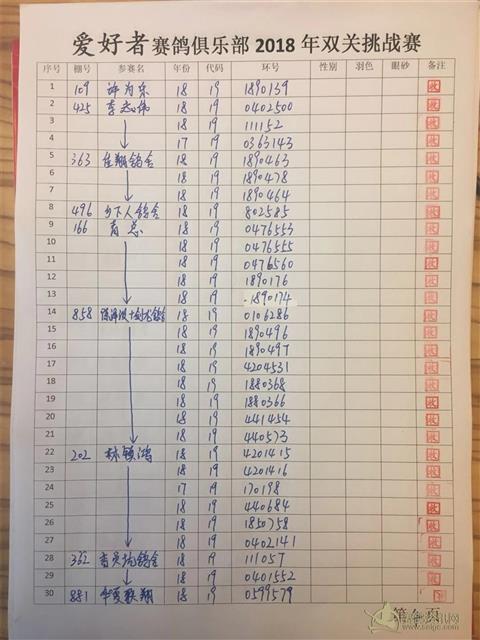 爱好者赛鸽俱乐部 2018 年双关挑战赛
序号 棚号 参赛名 年份 代码 环号 性别 羽色 眼砂 备注
1 109 许为东 18 19 1890139
2 425 李志伟 18 19 0402500
3 18 19 111152
4 17 19 0363143
5 363 佳翔鸽舍 18 19 1890463
6 18 19 1890478
7 18 19 1890464
8 496 乡下人鸽舍 18 19 802585
9 166 肖总 18 19 0476553
10 18 19 0476555
11 18 19 0476560
12 18 19 1890176
13 18 19 1890174
14 858 18 19 0106286
15 18 19 1890496
16 18 19 1890497
17 18 19 4204531
18 18 19 1880368
19 18 19 1880366
20 18 19 441454
21 18 19 440573
22 202 林顿鸿 18 19 4201415
23 18 19 4201416
24 17 19 170198
25 18 19 440684
26 18 19 1850758
27 18 19 0402141
28 362 18 19 111057
29 18 19 0401552
30 881 华夏联翔 18 19 0599579
第 页